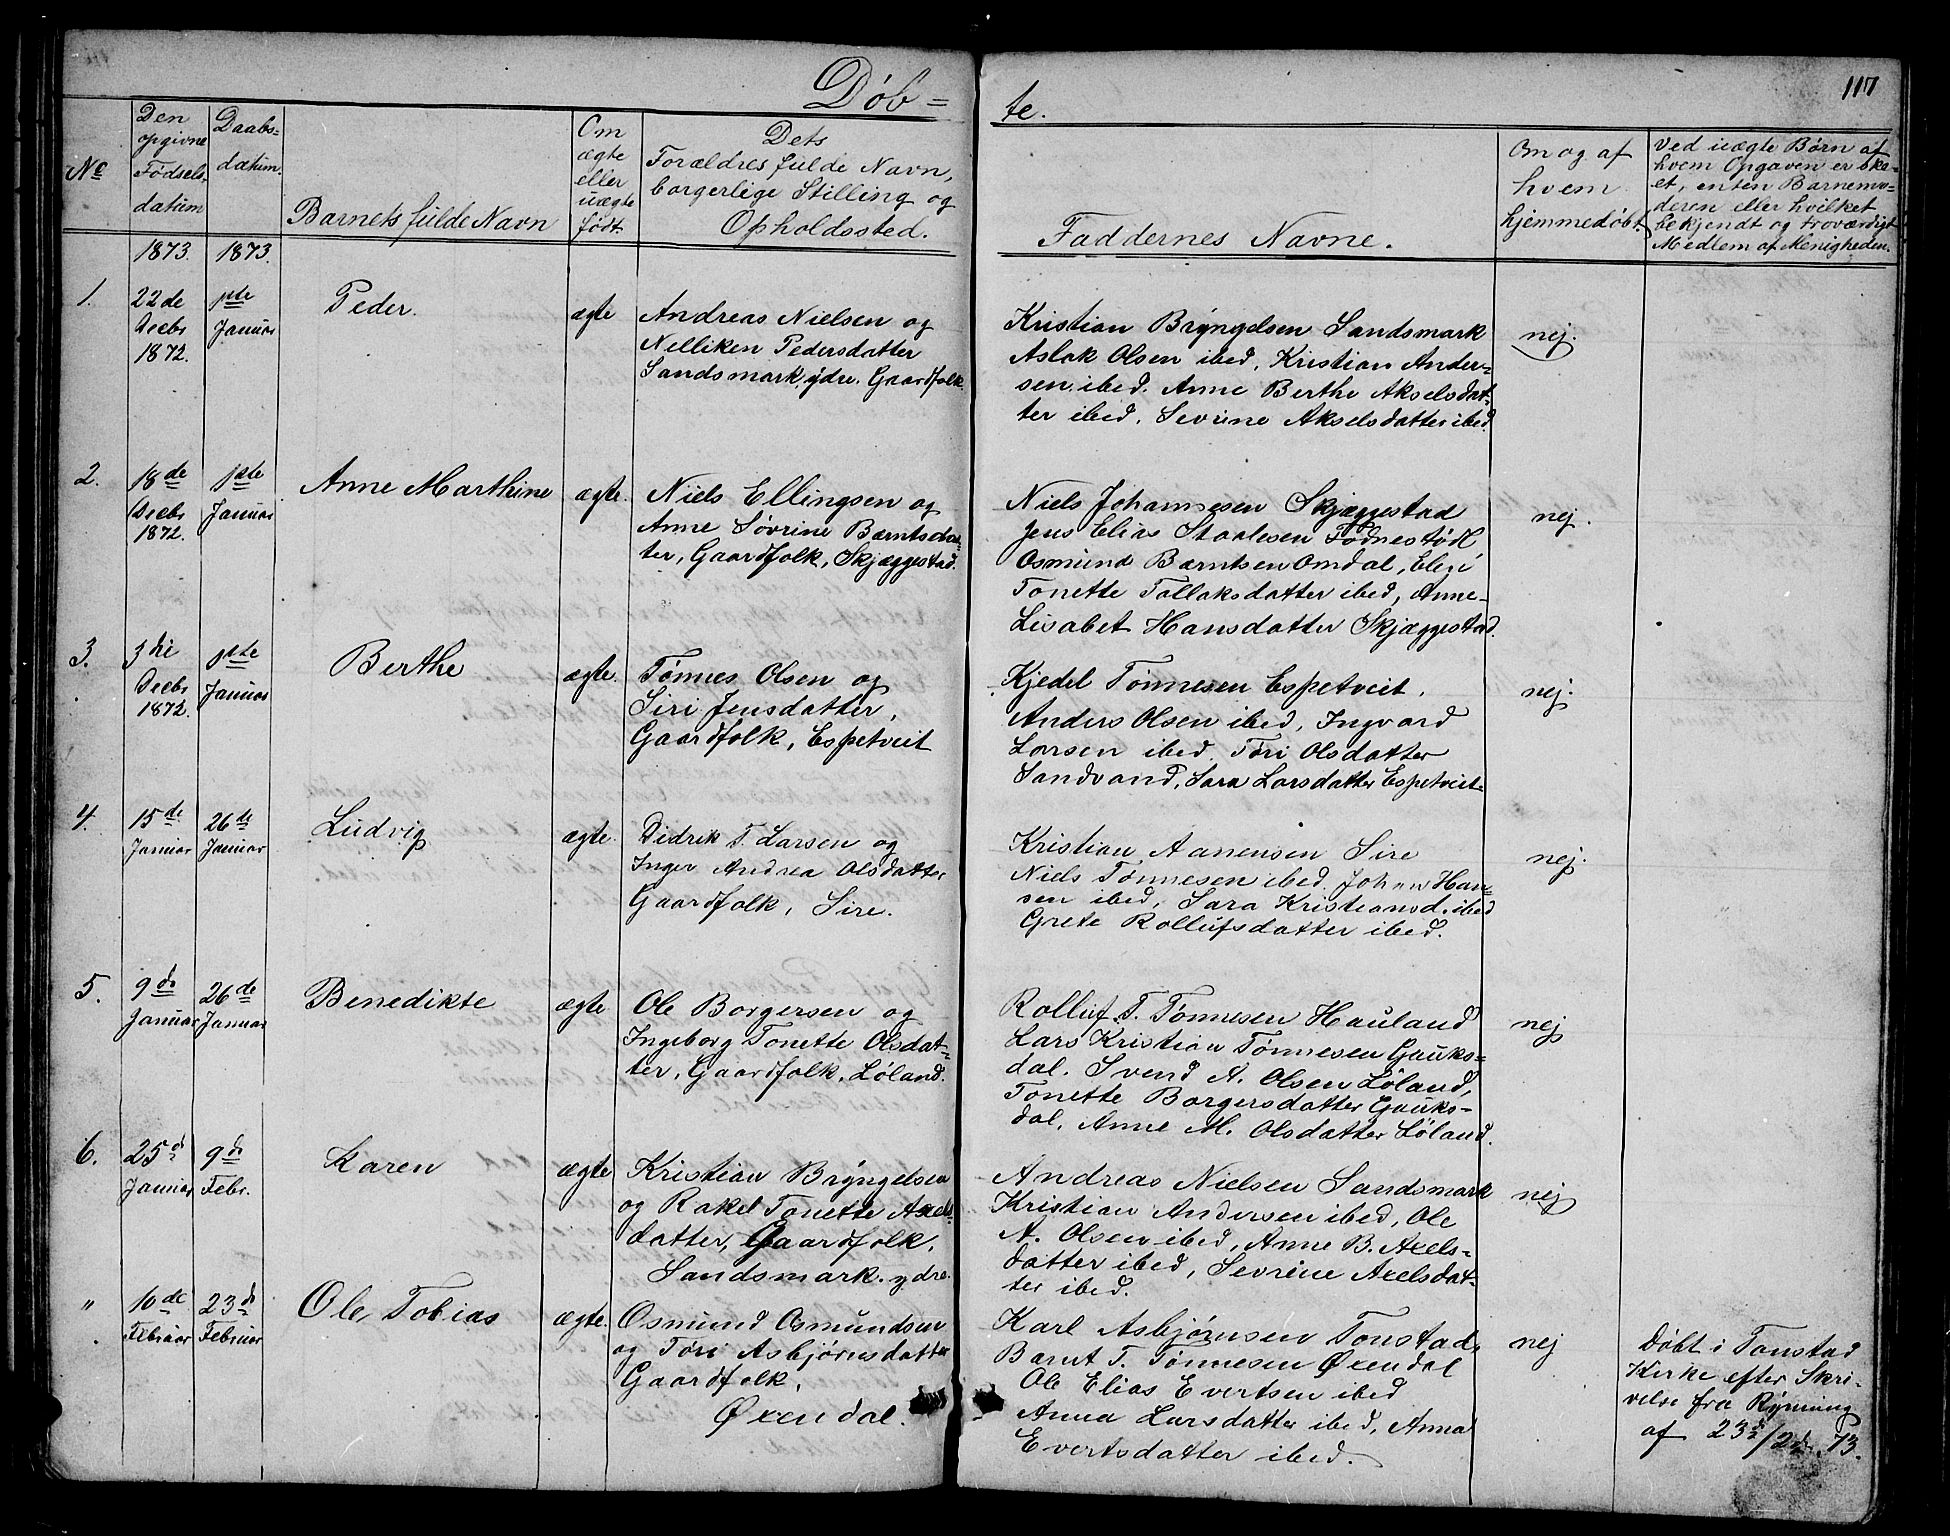 Døb=
te.
117
No
Den opgivne Fødsels datum
Daabs= datum.
Barnets fulde Navn
Om ægte eller uægte født
Dets Forældres fulde Navn, borgerlige Stilling og Opholdssted.
Faddernes Navne.
Om og af hvem hjemmedøbt.
Ved uægte Børn af hvem Opgaven er ske= et, enten Barnemo= deren eller hvilket bekjendt og troværdigt Medlem af Menigheden.
1873. 1873.
1. 22de Decbr 1872. 1ste Januar Peder. ægte
Andreas Nielsen og
Nelliken Pedersdatter
Sandsmark ydre. Gaardfolk.
Kristian Brÿngelsen Sandsmark
Aslak Olsen ibed, Kristian Ander=
sen ibed. Anne Berthe Akselsdat=
ter ibed, Sevrine Akselsdatter ibed.
nej.
2. 18de Decbr 1872. 1ste Januar Anne Marthine ægte.
Niels Ellingsen og
Anne Sovrine Barntsdat=
ter, Gaardfolk, Skjæggestad.
Niels Johannesen Skjæggestad
Jens Elias Staalesen Fødnestøl
Osmund Barntsen Omdal, Eleri
Tonette Tollaksdatter ibed, Anne-
Lisabet Hansdatter Skjæggestad.
nej.
3. 3die Decbr 1872. 1ste Januar Berthe ægte.
Tønnes Olsen og
Siri Jensdatter,
Gaardfolk, Espetveit
Kjedel Tønnesen Espetveit.
Anders Olsen ibed, Ingvard
Larsen ibed. Tori Olsdatter
Sandvand, Sara Larsdatter Espetveit.
nej.
4. 15de Januar 26de Januar Ludvig ægte.
Didrik T. Larsen og
Inger Andrea Olsdatter
Gaardfolk, Sire.
Kristian Aanensen Sire
Niels Tønnesen ibed. Johan Han=
sen ibed, Sara Kristiansd. ibed
Grete Rollufsdatter ibed.
nej.
5. 9de Januar 26de Januar Benedikte ægte
Ole Borgersen og
Ingeborg Tonette Olsdat=
ter, Gaardfolk, Løland.
Rolluf T. Tønnesen Hauland
Lars Kristian Tønnesen Gauks=
dal. Svend A. Olsen Løland,
Tonette Borgersdatter Gauks-
dal, Anne M. Olsdatter Løland.
nej
6. 25d Januar 9de Febr. Karen ægte
Kristian Brÿngelsen
og Rakel Tonette Axels=
datter, Gaardfolk,
Sandsmark. ydre.
Andreas Nielsen Sandsmark
Kristian Andersen ibed, Ole
A. Olsen ibed, Anne B. Axels=
datter ibed, Sevrine Axelsdat=
ter ibed.
nej
" 10de Februar 23d Februar Ole Tobias ægte.
Osmund Osmundsen
og Tori Asbjørnsdatter
Gaardfolk,
Øxendal.
Karl Asbjørnsen Tonstad,
Barnt T. Tønnesen Øxendal
Ole Elias Evertsen ibed
Anna Larsdatter ibed, Anna
Evertsdatter ibed.
nej
Døbt i Tonstad
Kirke efter Skri=
velse fra Rÿning
af 23d/2d 73.